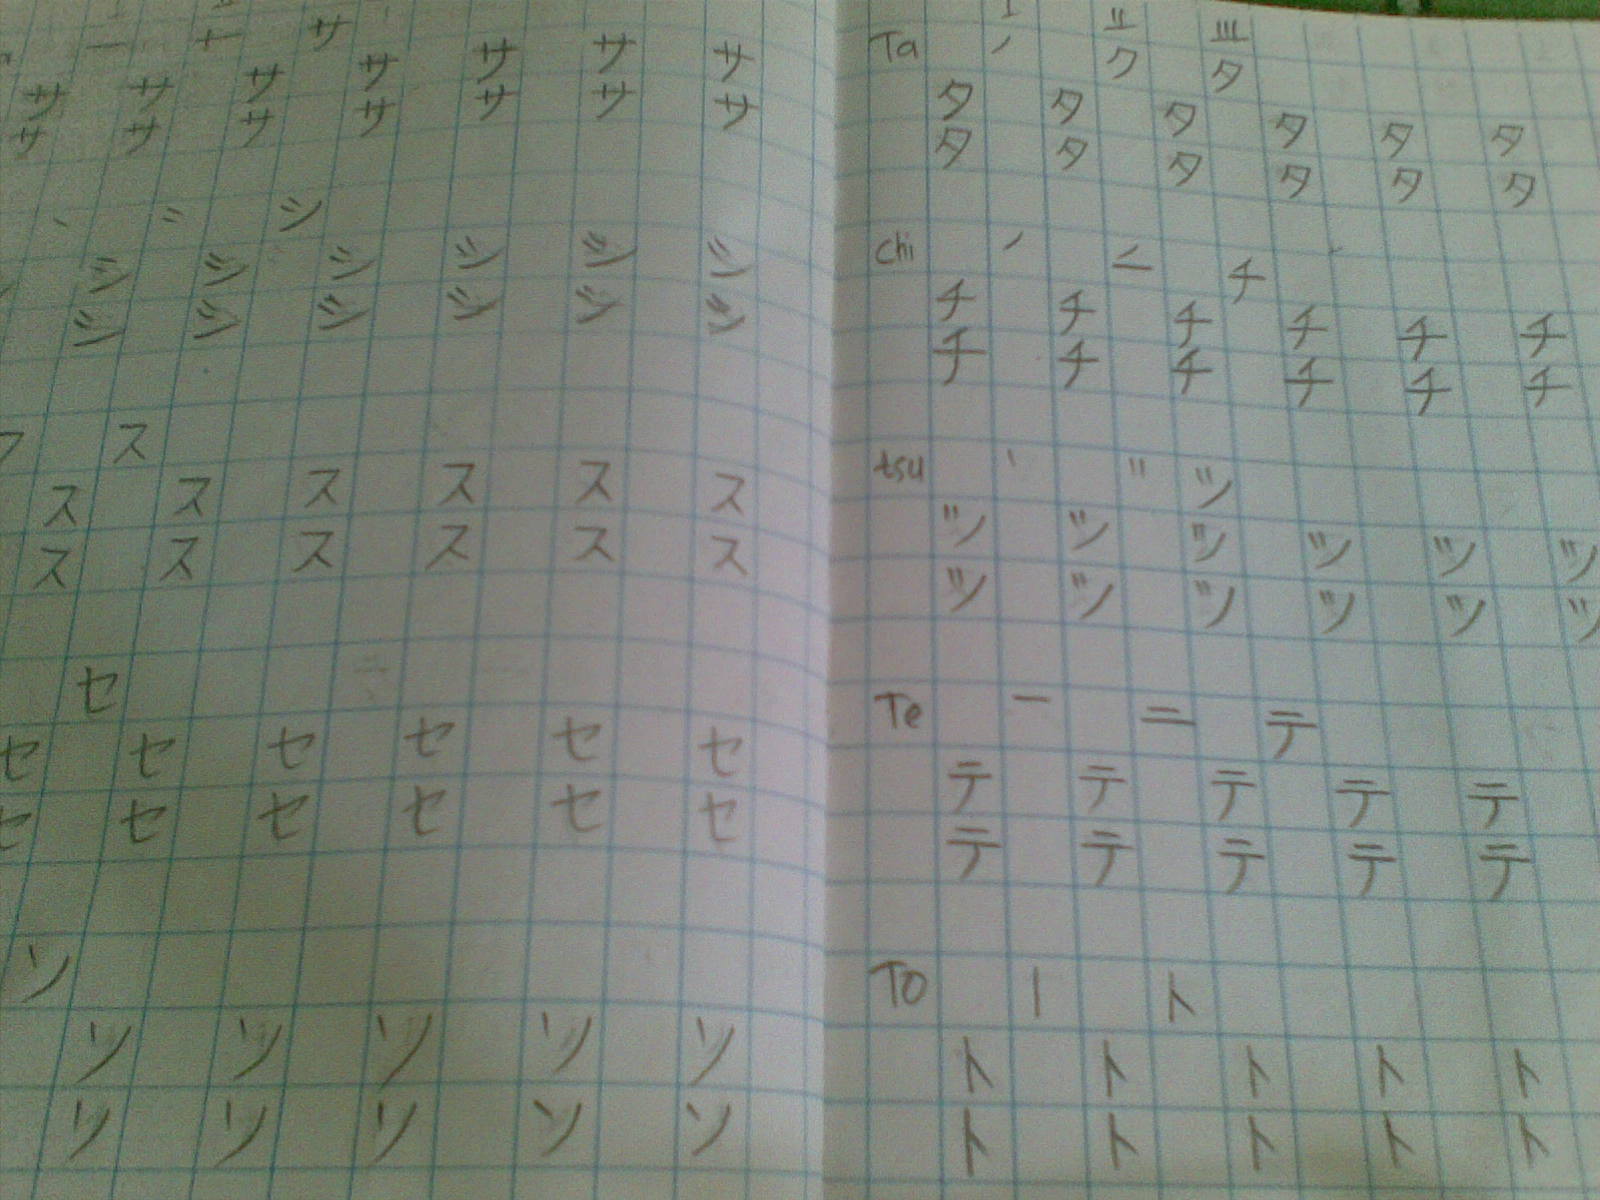 一 ナ サ
サ サ サ サ サ サ サ
サ サ サ サ サ サ サ
シ
シ シ シ シ シ シ
シ シ シ シ シ シ
フ ス
ス ス ス ス ス ス
ス ス ス ス ス ス
セ
セ セ セ セ セ セ
セ セ セ セ セ セ
ソ
ソ ソ ソ ソ ソ
ソ ソ ソ ソ ソ
I II III
Ta ノ ク タ
タ タ タ タ タ タ
タ タ タ タ タ タ
chi ノ ニ チ
チ チ チ チ チ チ
チ チ チ チ チ チ
tsu ヽ ツ
ツ ツ ツ ツ ツ ツ
ツ ツ ツ ツ ツ ツ
Te 一 ニ テ
テ テ テ テ テ
テ テ テ テ テ
TO | ト
ト ト ト ト ト
ト ト ト ト ト